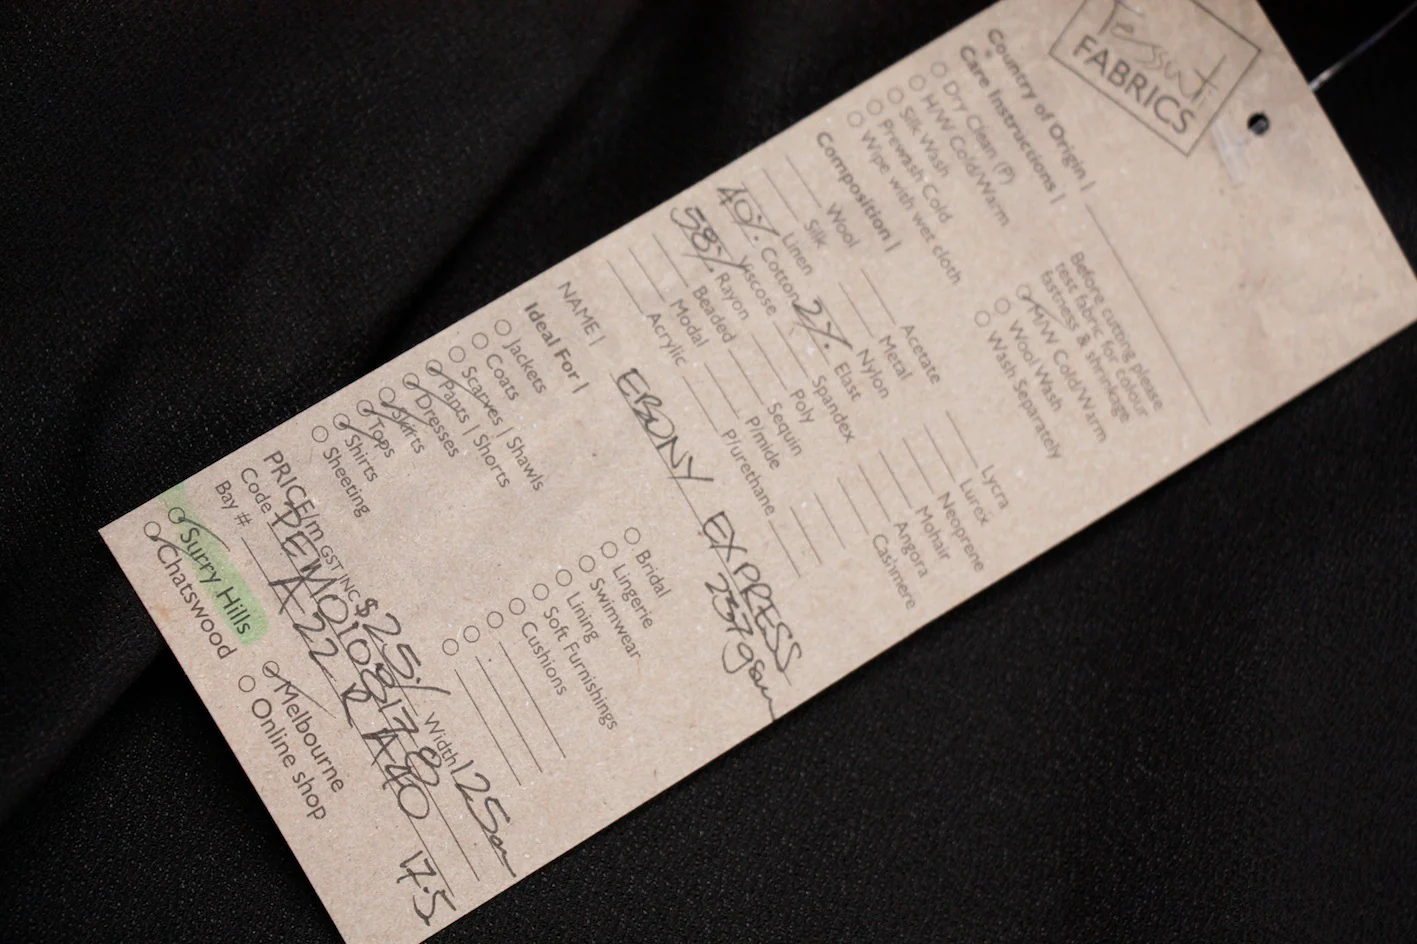 Tessuti
FABRICS
Country of Origin |
Care Instructions |
Dry Clean (P)
H/W Cold/Warm
Silk Wash
Prewash Cold
Wipe with wet cloth
Before cutting please
test fabric for colour
fastness & shrinkage
M/W Cold/Warm
Wool Wash
Wash Separately
Composition |
Wool
Silk
Linen
40% Cotton
Viscose
58% Rayon
Beaded
Modal
Acrylic
Acetate
Metal
Nylon
2% Elast
Spandex
Poly
Sequin
P/mide
P/urethane
Lycra
Lurex
Neoprene
Mohair
Angora
Cashmere
NAME | EBONY EXPRESS
237gsm
Ideal For |
Jackets
Coats
Scarves | Shawls
Pants | Shorts
Dresses
Skirts
Tops
Shirts
Sheeting
Bridal
Lingerie
Swimwear
Lining
Soft Furnishings
Cushions
PRICE/m GST INC $25/ Width 125cm
Code
Bay # A-22 R A40 17.5
Surry Hills
Chatswood
Melbourne
Online shop